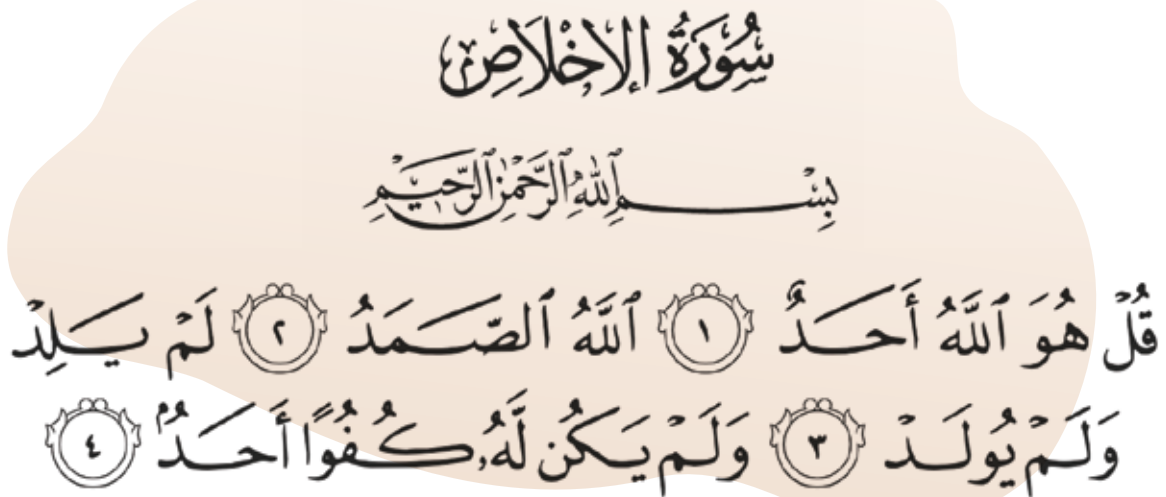 سُورَةُ الإِخْلَاصِ
بِسْمِ ٱللَّهِ ٱلرَّحْمَٰنِ ٱلرَّحِيمِ
قُلْ هُوَ ٱللَّهُ أَحَدٌ ١ ٱللَّهُ ٱلصَّمَدُ ٢ لَمْ يَلِدْ
وَلَمْ يُولَدْ ٣ وَلَمْ يَكُن لَّهُۥ كُفُوًا أَحَدٌۢ ٤